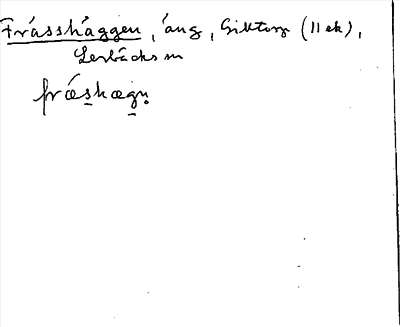 Frässhäggen, äng, Gilltorp (11 ek),
Lerbäcks sn
fræshægn̥